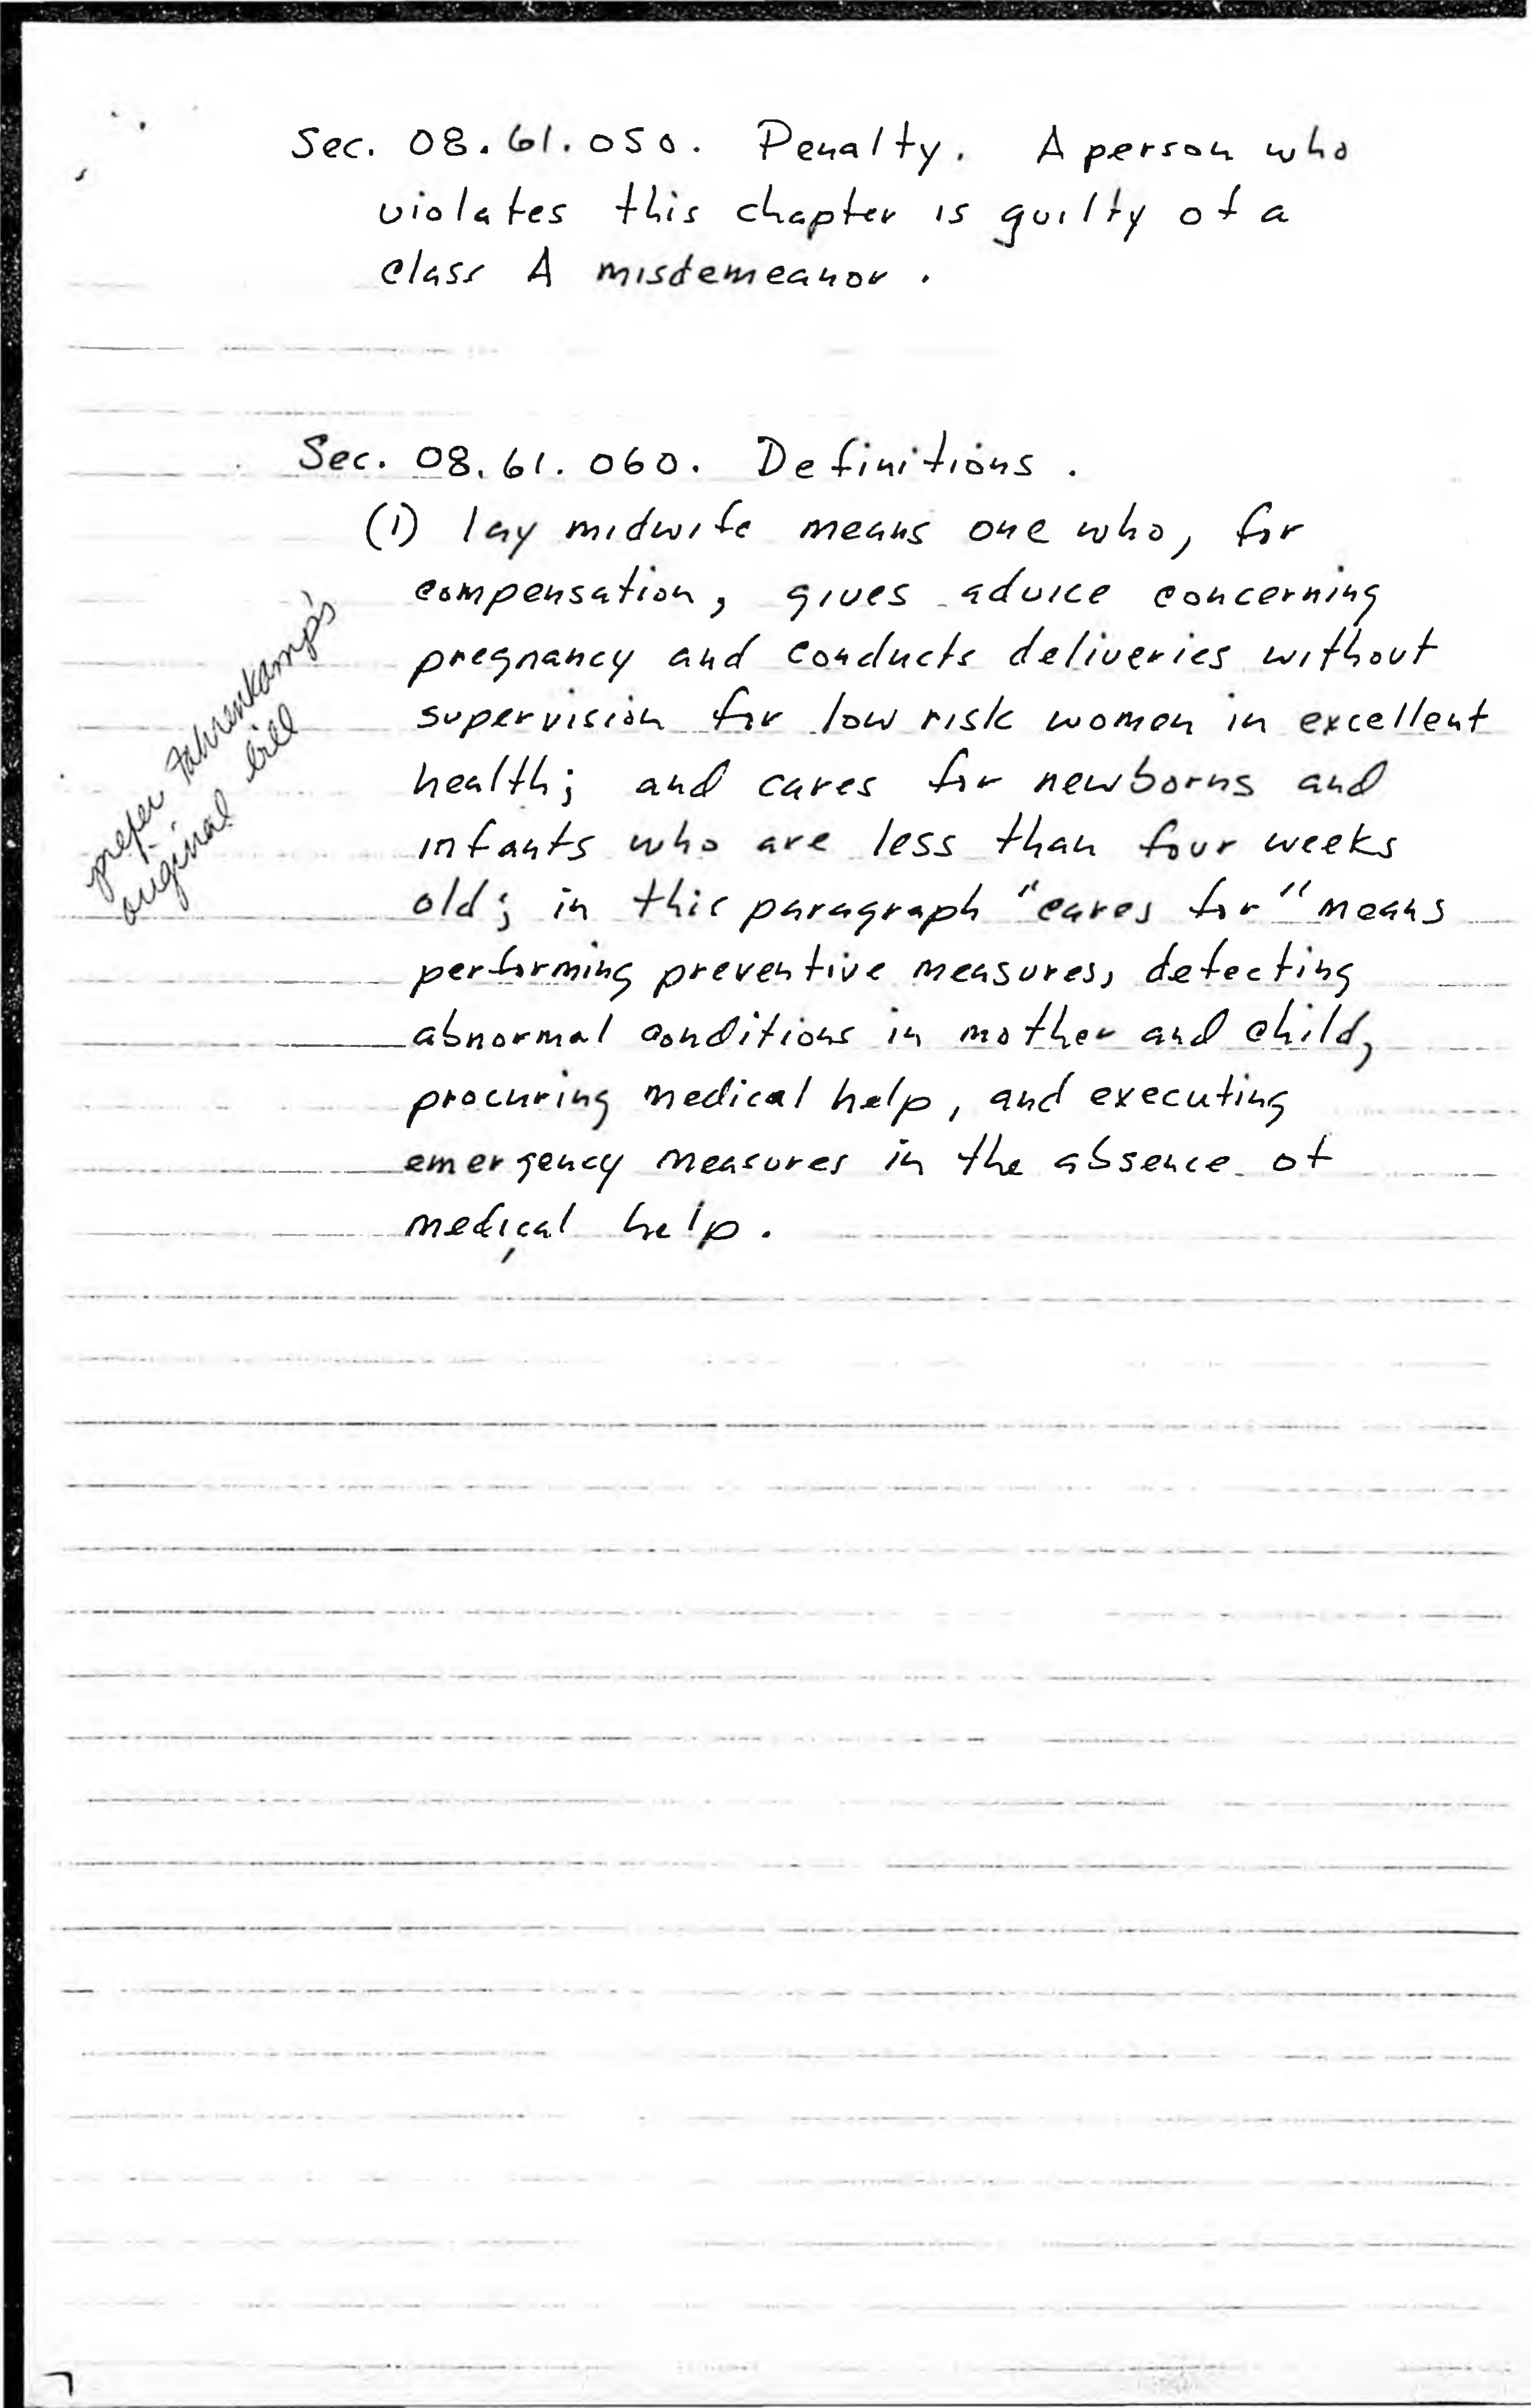 Sec. 08.61.050. Penalty. A person who
violates this chapter is guilty of a
class A misdemeanor.
Sec. 08.61.060. Definitions.
(1) lay midwife means one who, for
compensation, gives advice concerning
pregnancy and conducts deliveries without
supervision for low risk women in excellent
health; and cares for newborns and
infants who are less than four weeks
old; in this paragraph "cares for" means
performing preventive measures, detecting
abnormal conditions in mother and child,
procuring medical help, and executing
emergency measures in the absence of
medical help.
prefer Fahrenkamp's
original bill